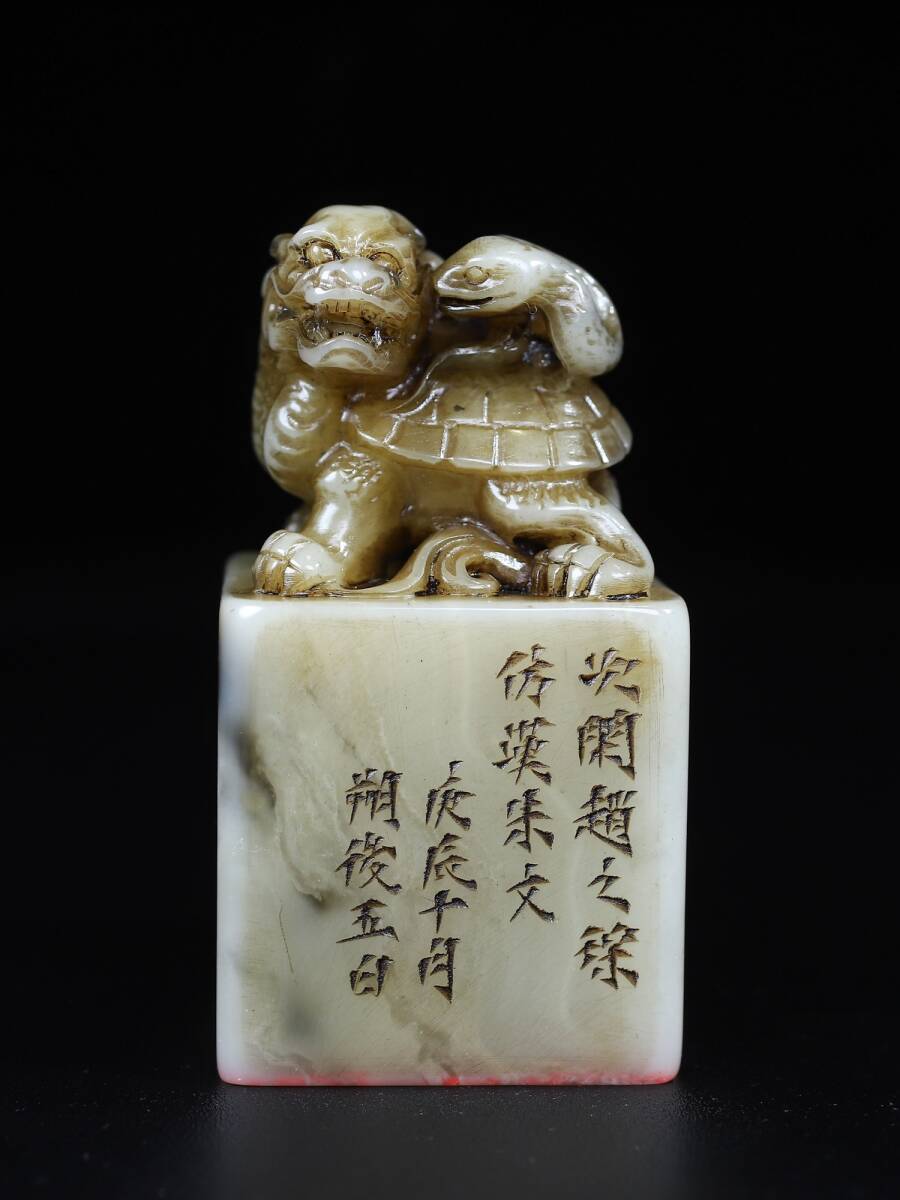 次閑趙之琛
仿漢朱文
庚辰十月
朔後五日